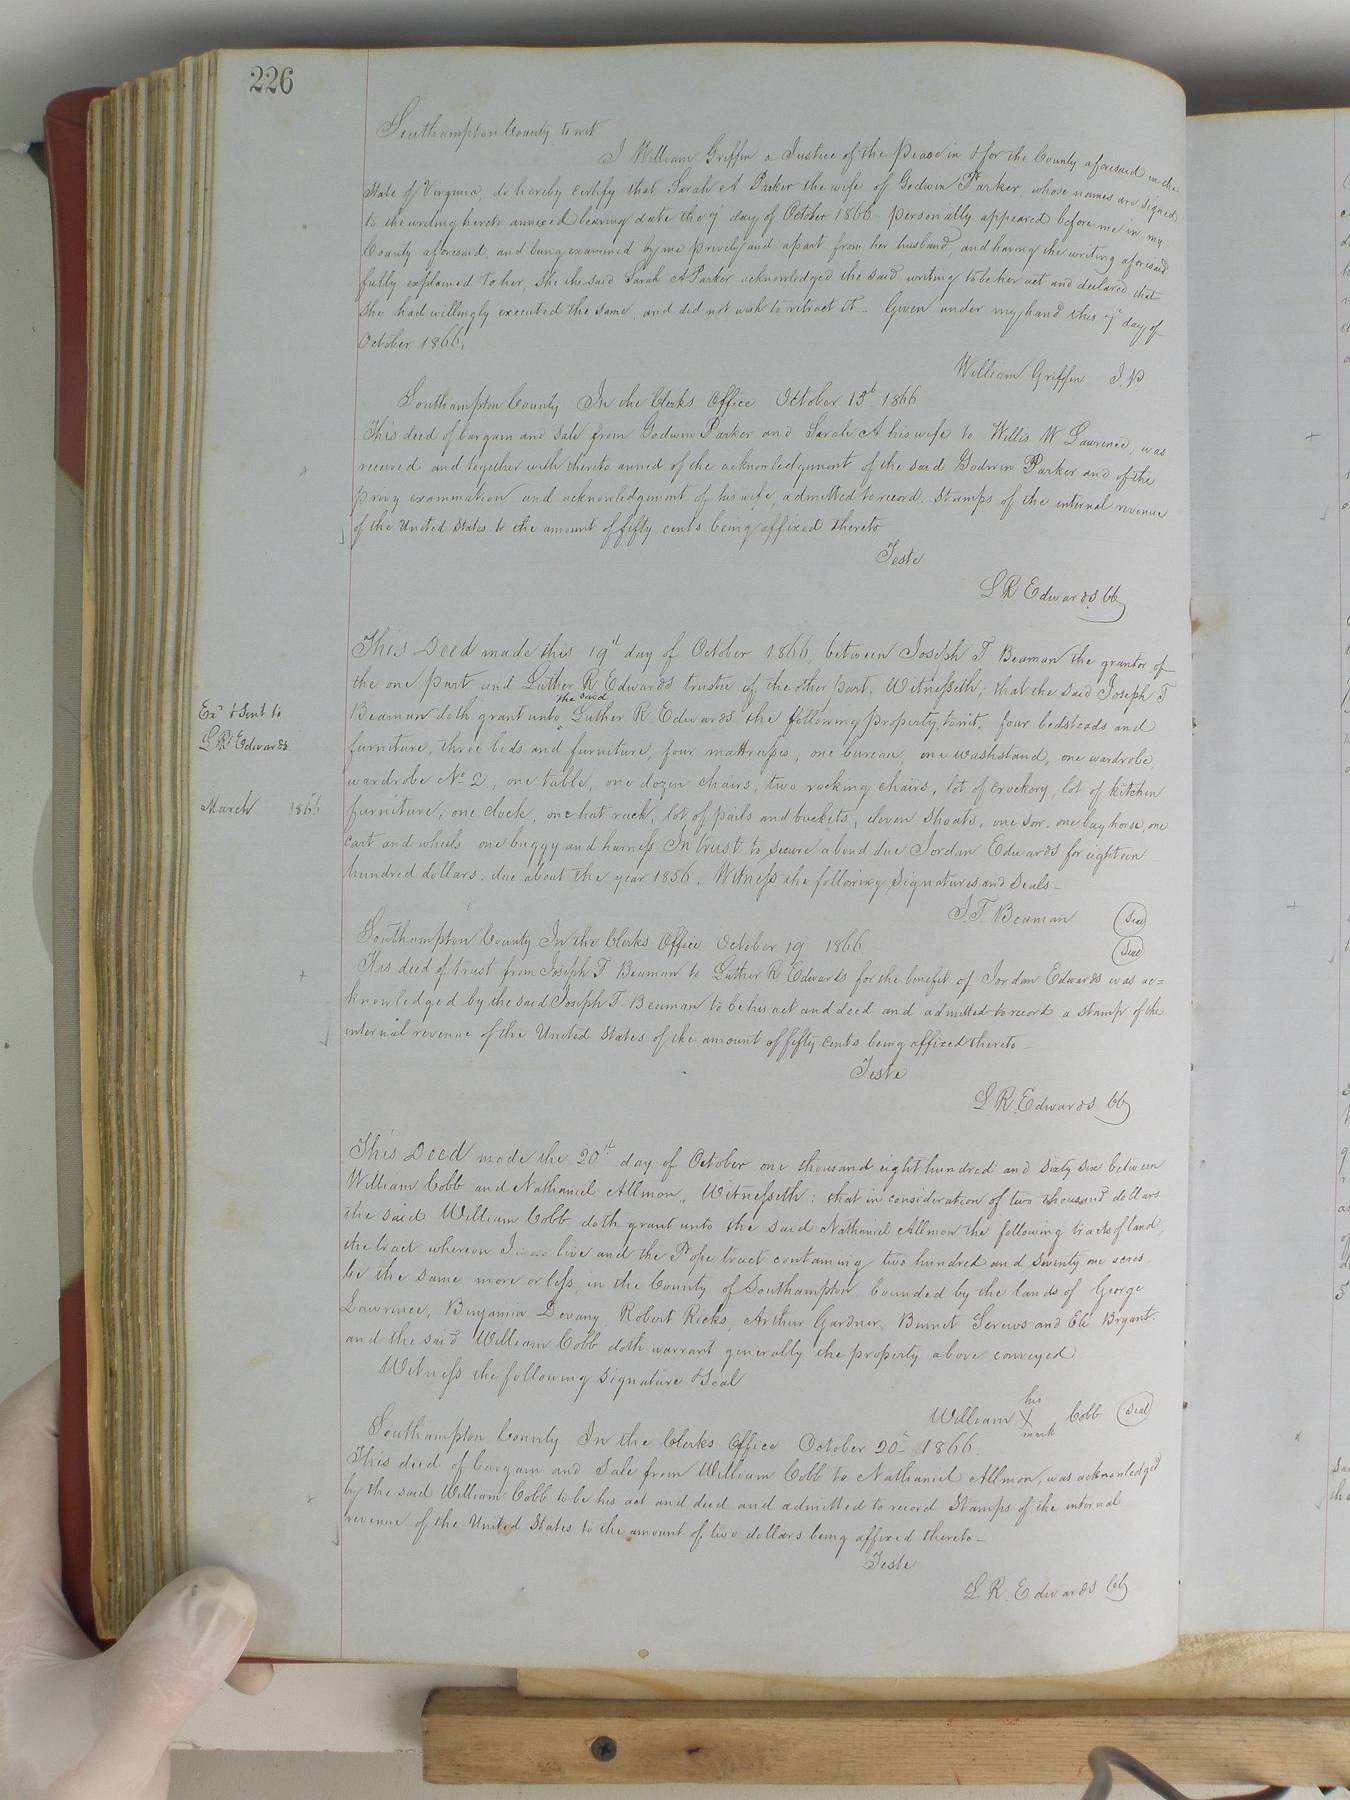 226
Southampton County to wit
I William Griffin a Justice of the peace in & for the County aforesaid in the
State of Virginia, do hereby certify that Sarah A Parker the wife of Godwin Parker, whose names are signed
to the writing hereto annexed bearing date the 7" day of October 1866 personally appeared before me in my
County aforesaid, and being examined by me privily and apart from her husband, and having the writing aforesaid
fully explained to her, She the said Sarah A Parker acknowledged the said writing to be her act and declared that
She had willingly executed the same, and did not wish to retract it - Given under my hand this 7" day of
October 1866.
William Griffin J.P
Southampton County In the Clerks Office October 13th 1866
This deed of bargain and sale from Godwin Parker and Sarah A his wife to Willis W Lawrence, was
received and together with thereto anned of the acknowledgment of the said Godwin Parker and of the
privy examination and acknowledgment of his wife, admitted to record. Stamps of the internal revenue
of the United States to the amount of fifty cents being affixed thereto
Teste
L R Edwards CC
This Deed made this 19th day of October 1866, between Joseph T Beaman the grantor of
the one part and Luther R Edwards trustee of the other part. Witnesseth; that the said Joseph T
Beaman doth grant unto the said Luther R Edwards the following property towit, four bedsteads and
furniture, three beds and furniture, four mattrasses, one bureau, one washstand, one wardrobe,
wardrobe No 2, one table, one dozen chairs, two rocking chairs, lot of crockery, lot of kitchen
furniture, one clock, one hat rack, lot of pails and buckets, eleven shoats, one sow, one bay horse, one
cart and wheels one buggy and harness In trust to secure a bond due Jordan Edwards for eighteen
hundred dollars. due about the year 1856. Witness the following signatures and seals -
Exd & Sent to
L R Edwards
March 1866
J. T. Beaman Seal
Southampton County In the Clerks Office October 19 1866 Seal
This deed of trust from Joseph T Beaman to Luther R Edwards for the benefit of Jordan Edwards was ac=
knowledged by the said Joseph T. Beaman to be his act and deed and admitted to record a stamp of the
internal revenue of the United States of the amount of fifty cents being affixed thereto -
Teste
L R. Edwards CC
This Deed made the 20th day of October one thousand eight hundred and sixty six between
William Cobb and Nathaniel Allmon, Witnesseth: that in consideration of two thousand dollars
the said William Cobb doth grant unto the said Nathaniel Allmon the following tracts of land,
the tract whereon I live and the Pope tract containing two hundred and seventy one acres.
be the same more or less, in the County of Southampton bounded by the lands of George
Lawrence, Benjamin Devany, Robert Ricks, Arthur Gardner, Bennet Screws and Eli Bryant.
and the said William Cobb doth warrant generally the property above conveyed
Witness the following signature & Seal
William his X mark Cobb Seal
Southampton County In the Clerks Office October 20th 1866.
This deed of bargain and sale from William Cobb to Nathaniel Allmon, was acknowledged
by the said William Cobb to be his act and deed and admitted to record Stamps of the internal
revenue of the United States to the amount of two dollars being affixed thereto -
Teste
L R. Edwards CC